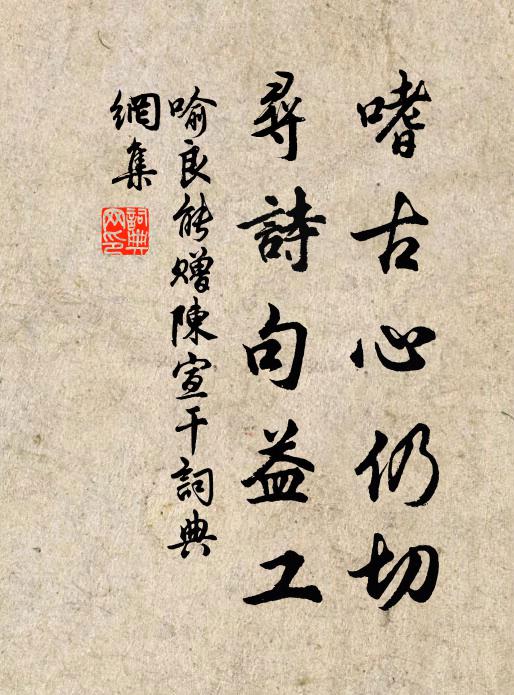 嗜古心仍切
尋詩句益工
喻良能贈陳宣干詞典
網集
詞典
网印